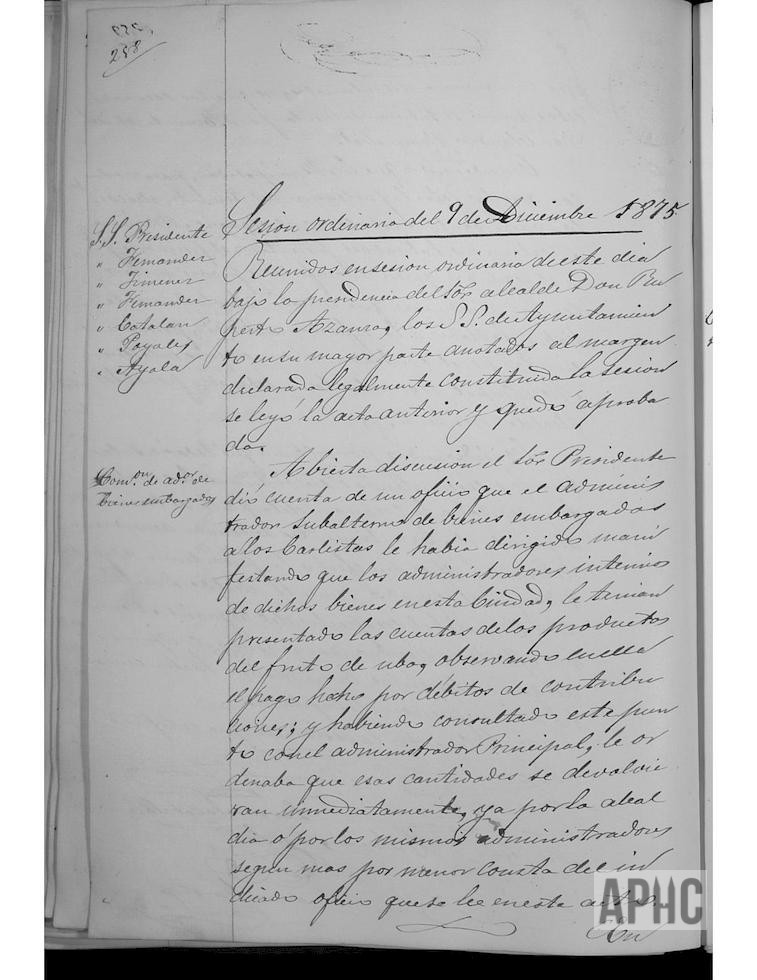 258
Sesion ordinaria del 9 de Diciembre 1875
S.S. Presidente
" Fernandez
" Jimenez
" Fernandez
" Catalan
" Poyales
" Ayala
Reunidos en sesion ordinaria de este dia
bajo la presidencia del Sor. alcalde Don Ru
perto Azanza, los S.S. de Ayuntamien
to en su mayor parte anotados al margen
declarada legalmente constituida la sesion
se leyó la acta anterior y quedó aproba
da.
Com.on de ad.or de
bienes embargados
Abierta discusion el Sor. Presidente
dió cuenta de un oficio que el adminis
trador subalterno de bienes embargados
a los Carlistas le habia dirigido mani
festando que los administradores interinos
de dichos bienes en esta Ciudad, le tenian
presentado las cuentas de los productos
del fruto de uba, observando en ella
el pago hecho por débitos de contribu
ciones; y habiendo consultado este pun
to con el administrador Principal, le or
denaba que esas cantidades se devolvie
ran inmediatamente, ya por la alcal
dia ó por los mismos administradores
segun mas por menor consta del in
dicado oficio que se lee en este acto.
En
APHC